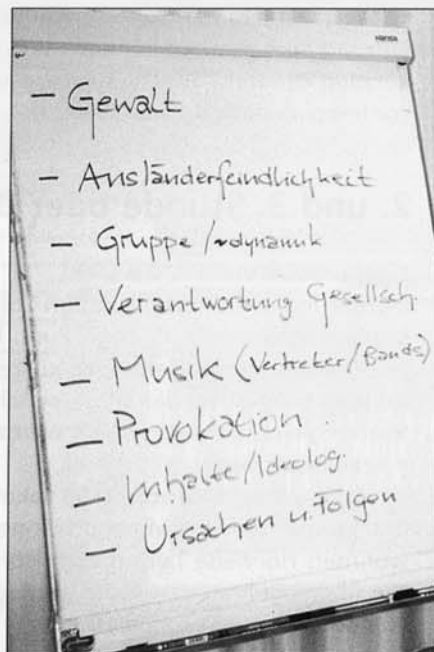 - Gewalt
- Ausländerfeindlichkeit
- Gruppe/~dynamik
- Verantwortung Gesellsch.
- Musik (Vertreter/Bands)
- Provokation
- Inhalte/Ideolog.
- Ursachen u. Folgen